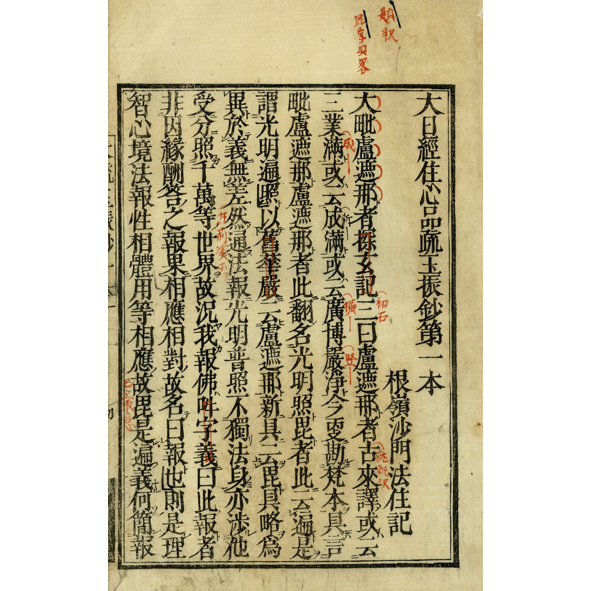 大日經住心品疏玉振鈔第一本
根嶺沙門法住記
大毗盧遮那者探玄記三曰盧遮那者古來譯或云
三業滿或云成滿或云廣博嚴淨今更勘梵本具言
毗盧遮那盧遮那者此翻名光明照毘者此云遍是
謂光明遍照以舊華嚴云盧遮那新具云毘具略爲
異於義無差然通法報光明普照不獨法身亦涉他
受分照千萬等世界故況我報佛吽字義曰此報者
非因緣酬答之報果相應相對故名曰報也則是理
智心境法報性相體用等相應故毘是遍義何簡報